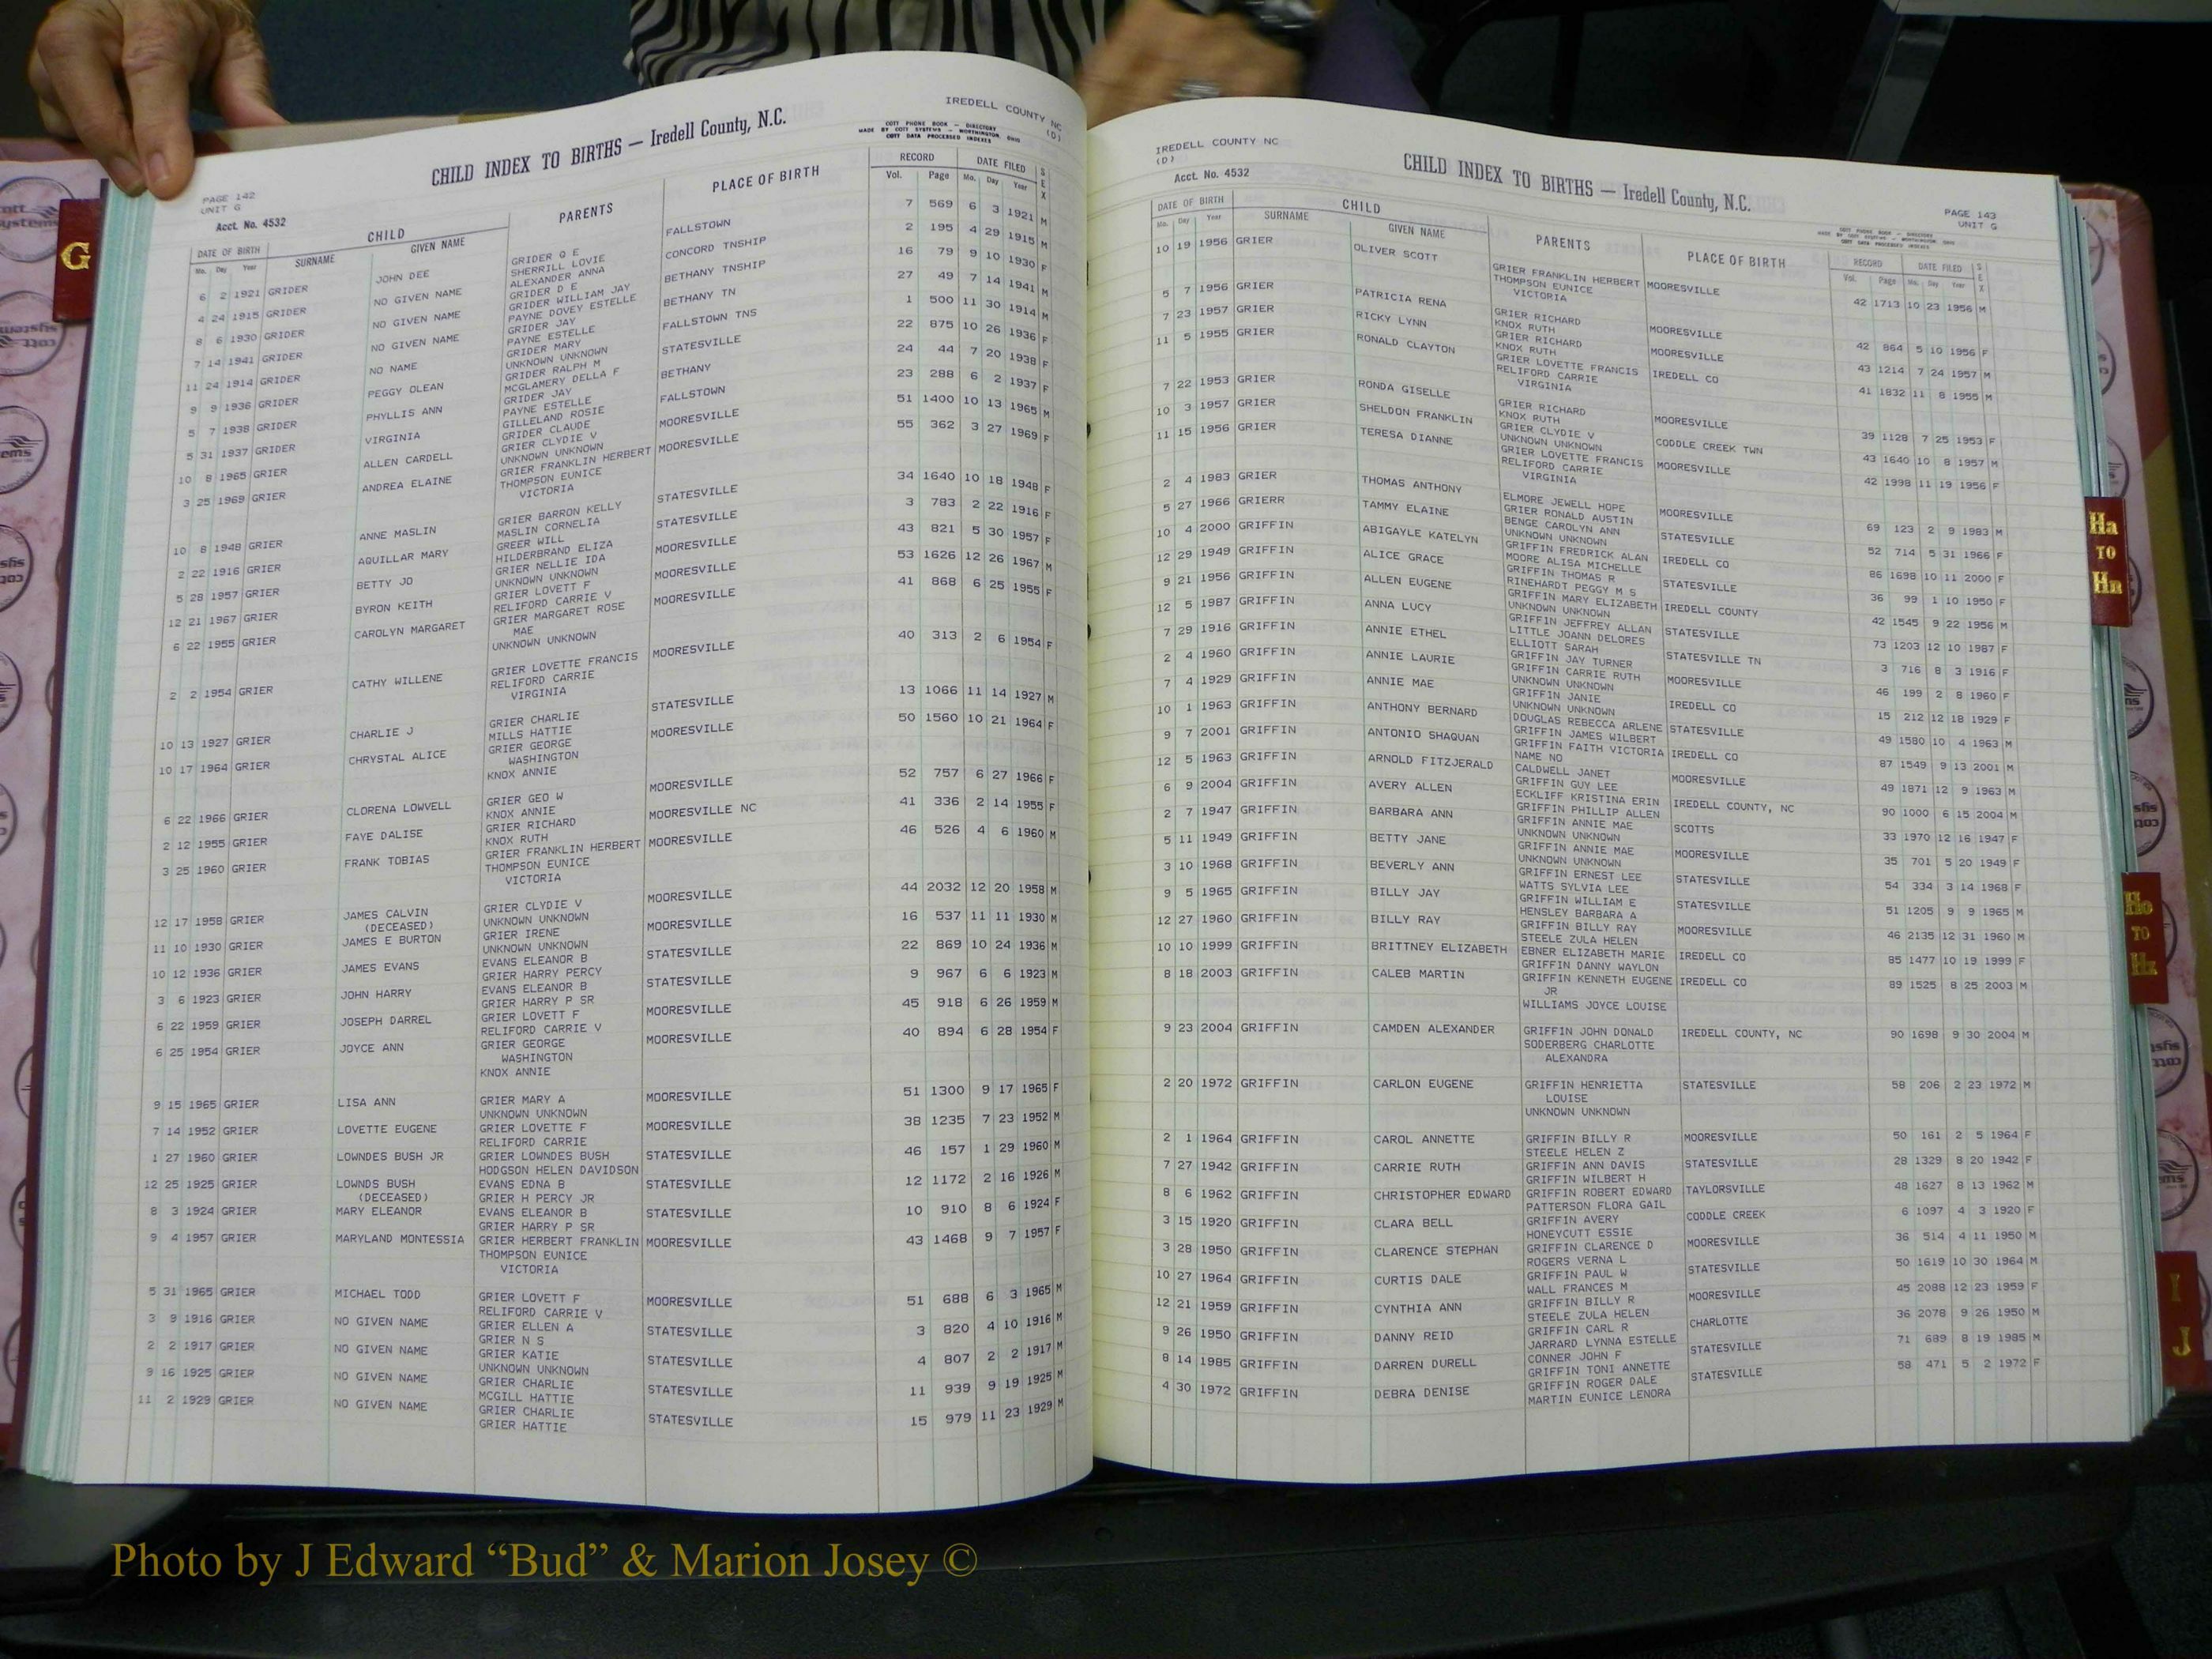 IREDELL COUNTY NC
(D)
CHILD INDEX TO BIRTHS — Iredell County, N.C.
COTT PHONE BOOK — DIRECTORY
MADE BY COTT SYSTEMS — WORTHINGTON, OHIO
COTT DATA PROCESSED INDEXES
PAGE 142
UNIT G
Acct. No. 4532
DATE OF BIRTH CHILD PARENTS PLACE OF BIRTH RECORD DATE FILED SEX
Mo. Day Year SURNAME GIVEN NAME Vol. Page Mo. Day Year
6 2 1921 GRIDER JOHN DEE GRIDER Q E FALLSTOWN 7 569 6 3 1921 M
SHERRILL LOVIE
4 24 1915 GRIDER NO GIVEN NAME ALEXANDER ANNA CONCORD TNSHIP 2 195 4 29 1915 M
GRIDER D E
8 6 1930 GRIDER NO GIVEN NAME GRIDER WILLIAM JAY BETHANY TNSHIP 16 79 9 10 1930 F
PAYNE DOVEY ESTELLE
7 14 1941 GRIDER NO GIVEN NAME GRIDER JAY BETHANY TN 27 49 7 14 1941 M
PAYNE ESTELLE
11 24 1914 GRIDER NO NAME GRIDER MARY FALLSTOWN TNS 1 500 11 30 1914 M
UNKNOWN UNKNOWN
9 9 1936 GRIDER PEGGY OLEAN GRIDER RALPH M STATESVILLE 22 875 10 26 1936 F
MCGLAMERY DELLA F
5 7 1938 GRIDER PHYLLIS ANN GRIDER JAY BETHANY 24 44 7 20 1938 F
PAYNE ESTELLE
5 31 1937 GRIDER VIRGINIA GILLELAND ROSIE FALLSTOWN 23 288 6 2 1937 F
GRIDER CLAUDE
10 8 1965 GRIER ALLEN CARDELL GRIER CLYDIE V MOORESVILLE 51 1400 10 13 1965 M
UNKNOWN UNKNOWN
3 25 1969 GRIER ANDREA ELAINE GRIER FRANKLIN HERBERT MOORESVILLE 55 362 3 27 1969 F
THOMPSON EUNICE
VICTORIA
10 8 1948 GRIER ANNE MASLIN GRIER BARRON KELLY STATESVILLE 34 1640 10 18 1948 F
MASLIN CORNELIA
2 22 1916 GRIER AQUILLAR MARY GREER WILL STATESVILLE 3 783 2 22 1916 F
HILDERBRAND ELIZA
5 28 1957 GRIER BETTY JO GRIER NELLIE IDA MOORESVILLE 43 821 5 30 1957 F
UNKNOWN UNKNOWN
12 21 1967 GRIER BYRON KEITH GRIER LOVETT F MOORESVILLE 53 1626 12 26 1967 M
RELIFORD CARRIE V
6 22 1955 GRIER CAROLYN MARGARET GRIER MARGARET ROSE MOORESVILLE 41 868 6 25 1955 F
MAE
UNKNOWN UNKNOWN
2 2 1954 GRIER CATHY WILLENE GRIER LOVETTE FRANCIS MOORESVILLE 40 313 2 6 1954 F
RELIFORD CARRIE
VIRGINIA
10 13 1927 GRIER CHARLIE J GRIER CHARLIE STATESVILLE 13 1066 11 14 1927 M
MILLS HATTIE
10 17 1964 GRIER CHRYSTAL ALICE GRIER GEORGE MOORESVILLE 50 1560 10 21 1964 F
WASHINGTON
KNOX ANNIE
6 22 1966 GRIER CLORENA LOWVELL GRIER GEO W MOORESVILLE 52 757 6 27 1966 F
KNOX ANNIE
2 12 1955 GRIER FAYE DALISE GRIER RICHARD MOORESVILLE NC 41 336 2 14 1955 F
KNOX RUTH
3 25 1960 GRIER FRANK TOBIAS GRIER FRANKLIN HERBERT MOORESVILLE 46 526 4 6 1960 M
THOMPSON EUNICE
VICTORIA
12 17 1958 GRIER JAMES CALVIN GRIER CLYDIE V MOORESVILLE 44 2032 12 20 1958 M
(DECEASED) UNKNOWN UNKNOWN
11 10 1930 GRIER JAMES E BURTON GRIER IRENE MOORESVILLE 16 537 11 11 1930 M
UNKNOWN UNKNOWN
10 12 1936 GRIER JAMES EVANS EVANS ELEANOR B STATESVILLE 22 869 10 24 1936 M
GRIER HARRY PERCY
3 6 1923 GRIER JOHN HARRY EVANS ELEANOR B STATESVILLE 9 967 6 6 1923 M
GRIER HARRY P SR
6 22 1959 GRIER JOSEPH DARREL GRIER LOVETT F MOORESVILLE 45 918 6 26 1959 M
RELIFORD CARRIE V
6 25 1954 GRIER JOYCE ANN GRIER GEORGE MOORESVILLE 40 894 6 28 1954 F
WASHINGTON
KNOX ANNIE
9 15 1965 GRIER LISA ANN GRIER MARY A MOORESVILLE 51 1300 9 17 1965 F
UNKNOWN UNKNOWN
7 14 1952 GRIER LOVETTE EUGENE GRIER LOVETTE F MOORESVILLE 38 1235 7 23 1952 M
RELIFORD CARRIE
1 27 1960 GRIER LOWNDES BUSH JR GRIER LOWNDES BUSH STATESVILLE 46 157 1 29 1960 M
HODGSON HELEN DAVIDSON
12 25 1925 GRIER LOWNDS BUSH EVANS EDNA B STATESVILLE 12 1172 2 16 1926 M
(DECEASED) GRIER H PERCY JR
8 3 1924 GRIER MARY ELEANOR EVANS ELEANOR B STATESVILLE 10 910 8 6 1924 F
GRIER HARRY P SR
9 4 1957 GRIER MARYLAND MONTESSIA GRIER HERBERT FRANKLIN MOORESVILLE 43 1468 9 7 1957 F
THOMPSON EUNICE
VICTORIA
5 31 1965 GRIER MICHAEL TODD GRIER LOVETT F MOORESVILLE 51 688 6 3 1965 M
RELIFORD CARRIE V
3 9 1916 GRIER NO GIVEN NAME GRIER ELLEN A STATESVILLE 3 820 4 10 1916 M
GRIER N S
2 2 1917 GRIER NO GIVEN NAME GRIER KATIE STATESVILLE 4 807 2 2 1917 M
UNKNOWN UNKNOWN
9 16 1925 GRIER NO GIVEN NAME GRIER CHARLIE STATESVILLE 11 939 9 19 1925 M
MCGILL HATTIE
11 2 1929 GRIER NO GIVEN NAME GRIER CHARLIE STATESVILLE 15 979 11 23 1929 M
GRIER HATTIE
IREDELL COUNTY NC
(D)
CHILD INDEX TO BIRTHS — Iredell County, N.C.
Acct. No. 4532
PAGE 143
UNIT G
COTT PHONE BOOK — DIRECTORY
MADE BY COTT SYSTEMS — WORTHINGTON, OHIO
COTT DATA PROCESSED INDEXES
DATE OF BIRTH CHILD PARENTS PLACE OF BIRTH RECORD DATE FILED SEX
Mo. Day Year SURNAME GIVEN NAME Vol. Page Mo. Day Year
10 19 1956 GRIER OLIVER SCOTT GRIER FRANKLIN HERBERT MOORESVILLE 42 1713 10 23 1956 M
THOMPSON EUNICE
VICTORIA
5 7 1956 GRIER PATRICIA RENA GRIER RICHARD MOORESVILLE 42 864 5 10 1956 F
KNOX RUTH
7 23 1957 GRIER RICKY LYNN GRIER RICHARD MOORESVILLE 43 1214 7 24 1957 M
KNOX RUTH
11 5 1955 GRIER RONALD CLAYTON GRIER LOVETTE FRANCIS IREDELL CO 41 1832 11 8 1955 M
RELIFORD CARRIE
VIRGINIA
7 22 1953 GRIER RONDA GISELLE GRIER RICHARD MOORESVILLE 39 1128 7 25 1953 F
KNOX RUTH
10 3 1957 GRIER SHELDON FRANKLIN GRIER CLYDIE V CODDLE CREEK TWN 43 1640 10 8 1957 M
UNKNOWN UNKNOWN
11 15 1956 GRIER TERESA DIANNE GRIER LOVETTE FRANCIS MOORESVILLE 42 1998 11 19 1956 F
RELIFORD CARRIE
VIRGINIA
2 4 1983 GRIER THOMAS ANTHONY ELMORE JEWELL HOPE MOORESVILLE 69 123 2 9 1983 M
GRIER RONALD AUSTIN
5 27 1966 GRIERR TAMMY ELAINE BENGE CAROLYN ANN STATESVILLE 52 714 5 31 1966 F
UNKNOWN UNKNOWN
10 4 2000 GRIFFIN ABIGAYLE KATELYN GRIFFIN FREDRICK ALAN IREDELL CO 86 1698 10 11 2000 F
MOORE ALISA MICHELLE
12 29 1949 GRIFFIN ALICE GRACE GRIFFIN THOMAS R STATESVILLE 36 99 1 10 1950 F
RINEHARDT PEGGY M S
9 21 1956 GRIFFIN ALLEN EUGENE GRIFFIN MARY ELIZABETH IREDELL COUNTY 42 1545 9 22 1956 M
UNKNOWN UNKNOWN
12 5 1987 GRIFFIN ANNA LUCY GRIFFIN JEFFREY ALLAN STATESVILLE 73 1203 12 10 1987 F
LITTLE JOANN DELORES
7 29 1916 GRIFFIN ANNIE ETHEL ELLIOTT SARAH STATESVILLE TN 3 716 8 3 1916 F
GRIFFIN JAY TURNER
2 4 1960 GRIFFIN ANNIE LAURIE GRIFFIN CARRIE RUTH MOORESVILLE 46 199 2 8 1960 F
UNKNOWN UNKNOWN
7 4 1929 GRIFFIN ANNIE MAE GRIFFIN JANIE IREDELL CO 15 212 12 18 1929 F
UNKNOWN UNKNOWN
10 1 1963 GRIFFIN ANTHONY BERNARD DOUGLAS REBECCA ARLENE STATESVILLE 49 1580 10 4 1963 M
GRIFFIN JAMES WILBERT
9 7 2001 GRIFFIN ANTONIO SHAQUAN GRIFFIN FAITH VICTORIA IREDELL CO 87 1549 9 13 2001 M
NAME NO
12 5 1963 GRIFFIN ARNOLD FITZJERALD CALDWELL JANET MOORESVILLE 49 1871 12 9 1963 M
GRIFFIN GUY LEE
6 9 2004 GRIFFIN AVERY ALLEN ECKLIFF KRISTINA ERIN IREDELL COUNTY, NC 90 1000 6 15 2004 M
GRIFFIN PHILLIP ALLEN
2 7 1947 GRIFFIN BARBARA ANN GRIFFIN ANNIE MAE SCOTTS 33 1970 12 16 1947 F
UNKNOWN UNKNOWN
5 11 1949 GRIFFIN BETTY JANE GRIFFIN ANNIE MAE MOORESVILLE 35 701 5 20 1949 F
UNKNOWN UNKNOWN
3 10 1968 GRIFFIN BEVERLY ANN GRIFFIN ERNEST LEE STATESVILLE 54 334 3 14 1968 F
WATTS SYLVIA LEE
9 5 1965 GRIFFIN BILLY JAY GRIFFIN WILLIAM E STATESVILLE 51 1205 9 9 1965 M
HENSLEY BARBARA A
12 27 1960 GRIFFIN BILLY RAY GRIFFIN BILLY RAY MOORESVILLE 46 2135 12 31 1960 M
STEELE ZULA HELEN
10 10 1999 GRIFFIN BRITTNEY ELIZABETH EBNER ELIZABETH MARIE IREDELL CO 85 1477 10 19 1999 F
GRIFFIN DANNY WAYLON
8 18 2003 GRIFFIN CALEB MARTIN GRIFFIN KENNETH EUGENE IREDELL CO 89 1525 8 25 2003 M
JR
WILLIAMS JOYCE LOUISE
9 23 2004 GRIFFIN CAMDEN ALEXANDER GRIFFIN JOHN DONALD IREDELL COUNTY, NC 90 1698 9 30 2004 M
SODERBERG CHARLOTTE
ALEXANDRA
2 20 1972 GRIFFIN CARLON EUGENE GRIFFIN HENRIETTA STATESVILLE 58 206 2 23 1972 M
LOUISE
UNKNOWN UNKNOWN
2 1 1964 GRIFFIN CAROL ANNETTE GRIFFIN BILLY R MOORESVILLE 50 161 2 5 1964 F
STEELE HELEN Z
7 27 1942 GRIFFIN CARRIE RUTH GRIFFIN ANN DAVIS STATESVILLE 28 1329 8 20 1942 F
GRIFFIN WILBERT H
8 6 1962 GRIFFIN CHRISTOPHER EDWARD GRIFFIN ROBERT EDWARD TAYLORSVILLE 48 1627 8 13 1962 M
PATTERSON FLORA GAIL
3 15 1920 GRIFFIN CLARA BELL GRIFFIN AVERY CODDLE CREEK 6 1097 4 3 1920 F
HONEYCUTT ESSIE
3 28 1950 GRIFFIN CLARENCE STEPHAN GRIFFIN CLARENCE D MOORESVILLE 36 514 4 11 1950 M
ROGERS VERNA L
10 27 1964 GRIFFIN CURTIS DALE GRIFFIN PAUL W STATESVILLE 50 1619 10 30 1964 M
WALL FRANCES M
12 21 1959 GRIFFIN CYNTHIA ANN GRIFFIN BILLY R MOORESVILLE 45 2088 12 23 1959 F
STEELE ZULA HELEN
9 26 1950 GRIFFIN DANNY REID GRIFFIN CARL R CHARLOTTE 36 2078 9 26 1950 M
JARRARD LYNNA ESTELLE
8 14 1985 GRIFFIN DARREN DURELL CONNER JOHN F STATESVILLE 71 689 8 19 1985 M
GRIFFIN TONI ANNETTE
4 30 1972 GRIFFIN DEBRA DENISE GRIFFIN ROGER DALE STATESVILLE 58 471 5 2 1972 F
MARTIN EUNICE LENORA
G
Ha
TO
Hn
Ho
TO
Hz
I
J
Photo by J Edward “Bud” & Marion Josey ©